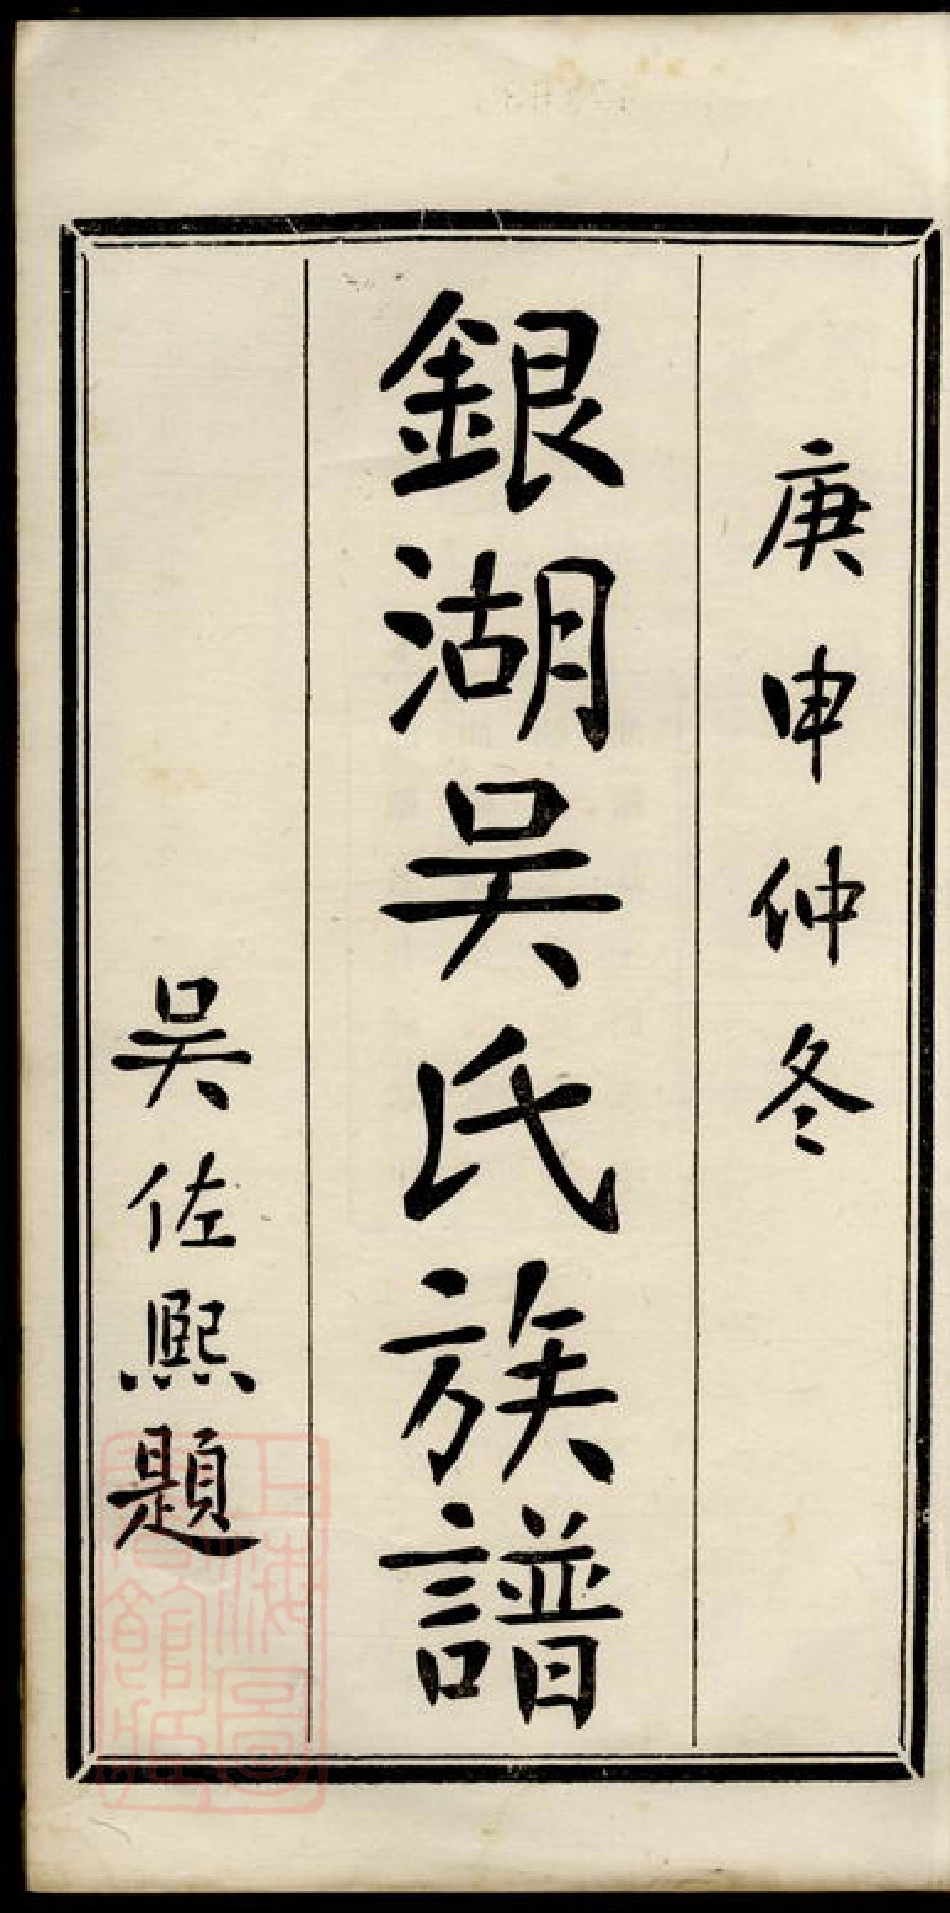 庚申仲冬
銀湖吳氏族譜
吳佐熙題
上海圖
書館藏